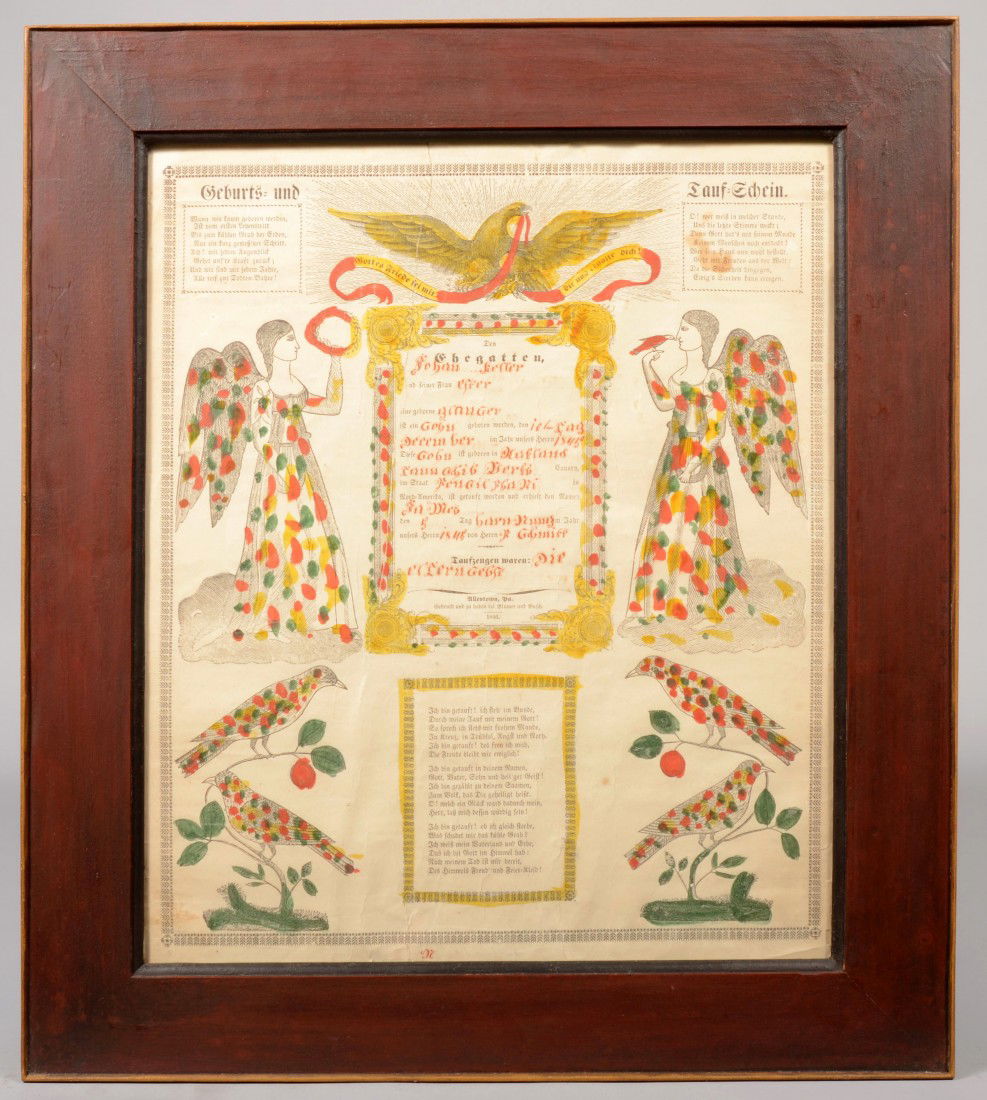 Geburts- und
Tauf-Schein.
Wann wir kaum geboren werden,
Ist vom ersten Lebenstritt
Bis zum kühlen Grab der Erden,
Nur ein kurz gemeß'ner Schritt.
Ach! mit jedem Augenblick
Gehet uns're Kraft zurück;
Und wir sind mit jedem Jahre,
Alle reif zur Todten-Bahre!
O! wer weiß in welcher Stunde,
Uns die letzte Stimme weckt;
Denn Gott hat's mit seinem Munde
Keinem Menschen noch entdeckt!
Wer sein Haus nun wohl bestellt,
Geht mit Freuden aus der Welt;
Da die Sicherheit hingegen,
Ewig's Sterben kann erregen.
Gottes Friede sei mit dir
Den
Ehegatten,
Johan Keller
und seiner Frau
eine geborne
ist ein Sohn geboren worden, den Tag
December im Jahr unsers Herrn
Diese Sohn ist geboren in
Taunschib Berks Caunty,
im Staat in
Nord-Amerika, ist getauft worden und erhielt den Namen
James
den Tag im Jahr
unsers Herrn von Herrn
Taufzeugen waren: Die
Allentown, Pa.
Gedruckt und zu haben bei Blumer und Busch.
Ich bin getauft! ich steh' im Bunde,
Durch meine Tauf mit meinem Gott!
So sprech ich stets mit frohem Munde,
In Kreuz, in Trübsal, Angst und Noth.
Ich bin getauft! deß freu ich mich,
Die Freude bleibt mir ewiglich!
Ich bin getauft in deinem Namen,
Gott, Vater, Sohn und heil'ger Geist!
Ich bin gezählt zu deinem Saamen,
Zum Volk, das Dir geheiligt heißt.
O! welch ein Glück ward dadurch mein,
Herr, laß mich dessen würdig sein!
Ich bin getauft! ob ich gleich sterbe,
Was schadet mir das kühle Grab?
Ich weiß mein Vaterland und Erbe,
Das ich bei Gott im Himmel hab:
Nach meinem Tod ist mir bereit,
Des Himmels Freud' und Feier-Kleid!